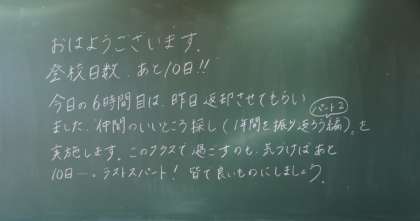 おはようございます。
登校日数、あと10日!!
今日の6時間目は、昨日返却させてもらい
パート2
ました、仲間のいいところ探し(1年間を振り返ろう編)を
実施します。このクラスで過ごすのも、気づけばあと
10日…。ラストスパート!皆で良いものにしましょう。